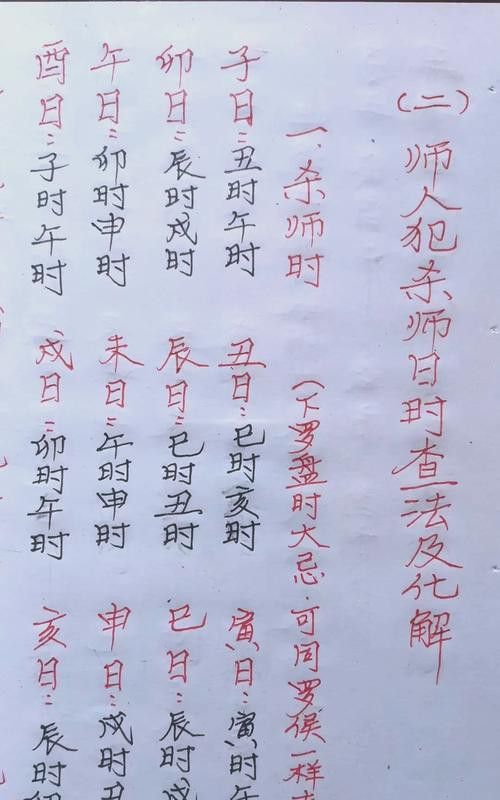 （二）师人犯杀师日时查法及化解
一、杀师时 （下罗盘时大忌.可同罗侯一样
子日：丑时午时 丑日：巳时亥时 寅日：寅时午
卯日：辰时戌时 辰日：巳时丑时 巳日：辰时戌
午日：卯时申时 未日：午时申时 申日：戌时丑
酉日：子时午时 戌日：卯时午时 亥日：辰时卯